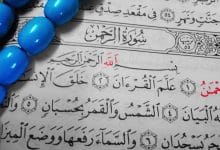 فِى مَقْعَدِ صِدْقٍ
سُورَةُ الرَّحْمَٰنِ
بِسْمِ اللَّهِ
حْمَٰنُ ١ عَلَّمَ الْقُرْءَانَ ٢ خَلَقَ الْإِنسَ
الْبَيَانَ ٤ الشَّمْسُ وَالْقَمَرُ بِحُسْبَانٍ ٥
جُدَانِ ٦ وَالسَّمَاءَ رَفَعَهَا وَوَضَعَ الْمِيزَا